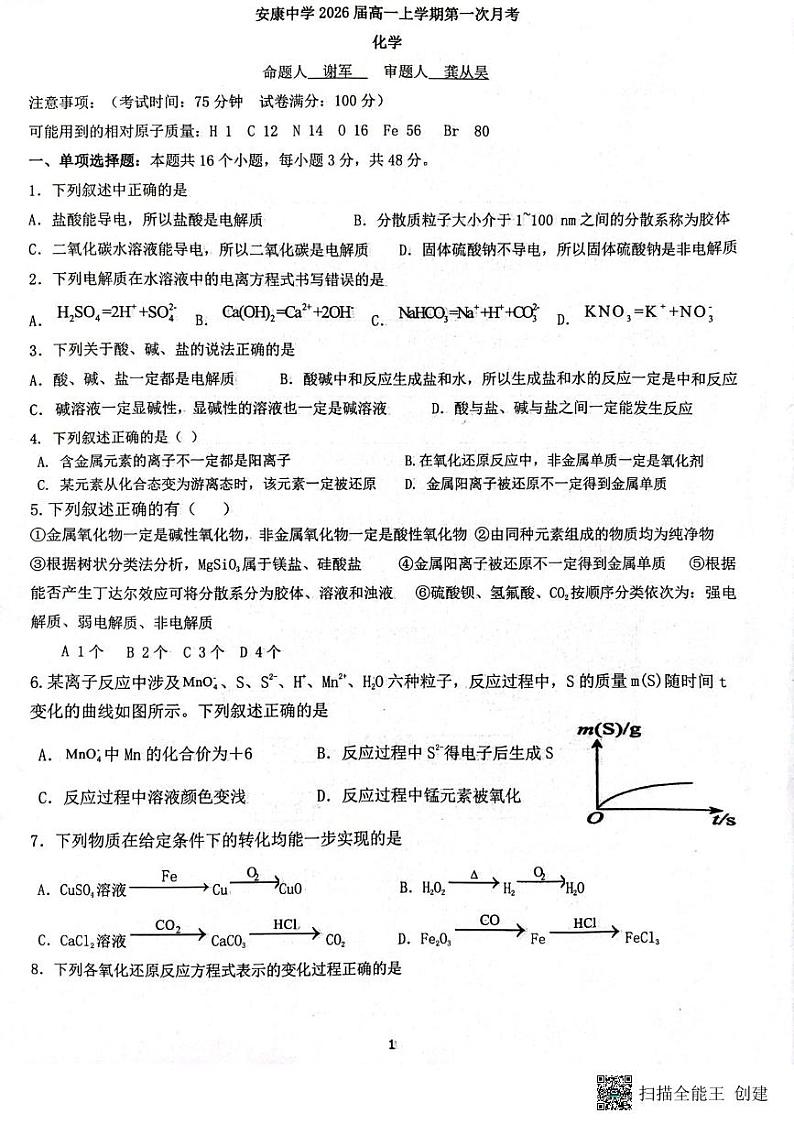 安康中学 2026 届高一上学期第一次月考
化学
命题人 谢军 审题人 龚从昊
注意事项：（考试时间：75 分钟 试卷满分：100 分）
可能用到的相对原子质量：H 1 C 12 N 14 O 16 Fe 56 Br 80
一、单项选择题：本题共 16 个小题，每小题 3 分，共 48 分。
1．下列叙述中正确的是
A．盐酸能导电，所以盐酸是电解质 B．分散质粒子大小介于 1~100 nm 之间的分散系称为胶体
C．二氧化碳水溶液能导电，所以二氧化碳是电解质 D．固体硫酸钠不导电，所以固体硫酸钠是非电解质
2．下列电解质在水溶液中的电离方程式书写错误的是
A． H₂SO₄=2H⁺+SO₄²⁻ B． Ca(OH)₂=Ca²⁺+2OH⁻ C． NaHCO₃=Na⁺+H⁺+CO₃²⁻ D． KNO₃=K⁺+NO₃⁻
3．下列关于酸、碱、盐的说法正确的是
A．酸、碱、盐一定都是电解质 B．酸碱中和反应生成盐和水，所以生成盐和水的反应一定是中和反应
C．碱溶液一定显碱性，显碱性的溶液也一定是碱溶液 D．酸与盐、碱与盐之间一定能发生反应
4．下列叙述正确的是（ ）
A．含金属元素的离子不一定都是阳离子 B.在氧化还原反应中，非金属单质一定是氧化剂
C．某元素从化合态变为游离态时，该元素一定被还原 D．金属阳离子被还原不一定得到金属单质
5.下列叙述正确的有（ ）
①金属氧化物一定是碱性氧化物，非金属氧化物一定是酸性氧化物 ②由同种元素组成的物质均为纯净物
③根据树状分类法分析，MgSiO₃属于镁盐、硅酸盐 ④金属阳离子被还原不一定得到金属单质 ⑤根据
能否产生丁达尔效应可将分散系分为胶体、溶液和浊液 ⑥硫酸钡、氢氟酸、CO₂按顺序分类依次为：强电
解质、弱电解质、非电解质
A 1个 B 2个 C 3个 D 4个
6.某离子反应中涉及MnO₄⁻、S、S²⁻、H⁺、Mn²⁺、H₂O 六种粒子，反应过程中，S 的质量 m(S)随时间 t
变化的曲线如图所示。下列叙述正确的是
m(S)/g
A．MnO₄⁻中 Mn 的化合价为＋6 B．反应过程中 S²⁻得电子后生成 S
C．反应过程中溶液颜色变浅 D．反应过程中锰元素被氧化
O t/s
7．下列物质在给定条件下的转化均能一步实现的是
A．CuSO₄溶液 —Fe→ Cu —O₂→ CuO B．H₂O₂ —Δ→ H₂ —O₂→ H₂O
C．CaCl₂溶液 —CO₂→ CaCO₃ —HCl→ CO₂ D．Fe₂O₃ —CO→ Fe —HCl→ FeCl₃
8．下列各氧化还原反应方程式表示的变化过程正确的是
1
扫描全能王 创建